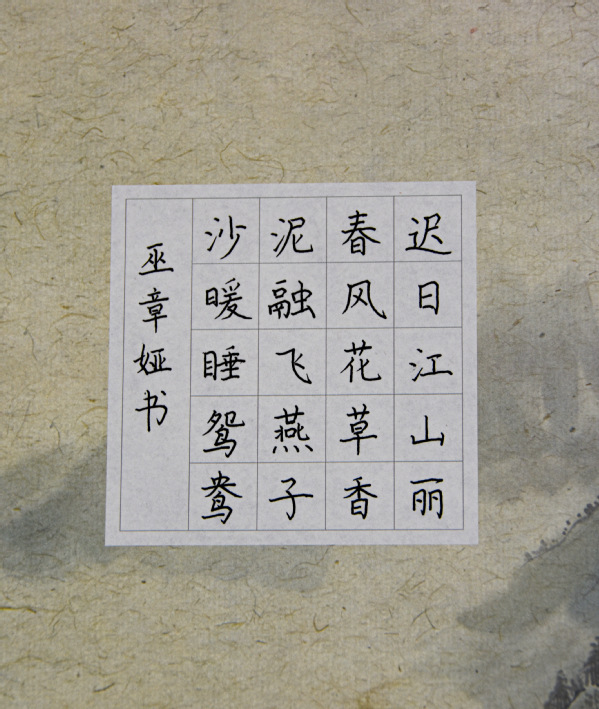 迟日江山丽
春风花草香
泥融飞燕子
沙暖睡鸳鸯
巫章娅书